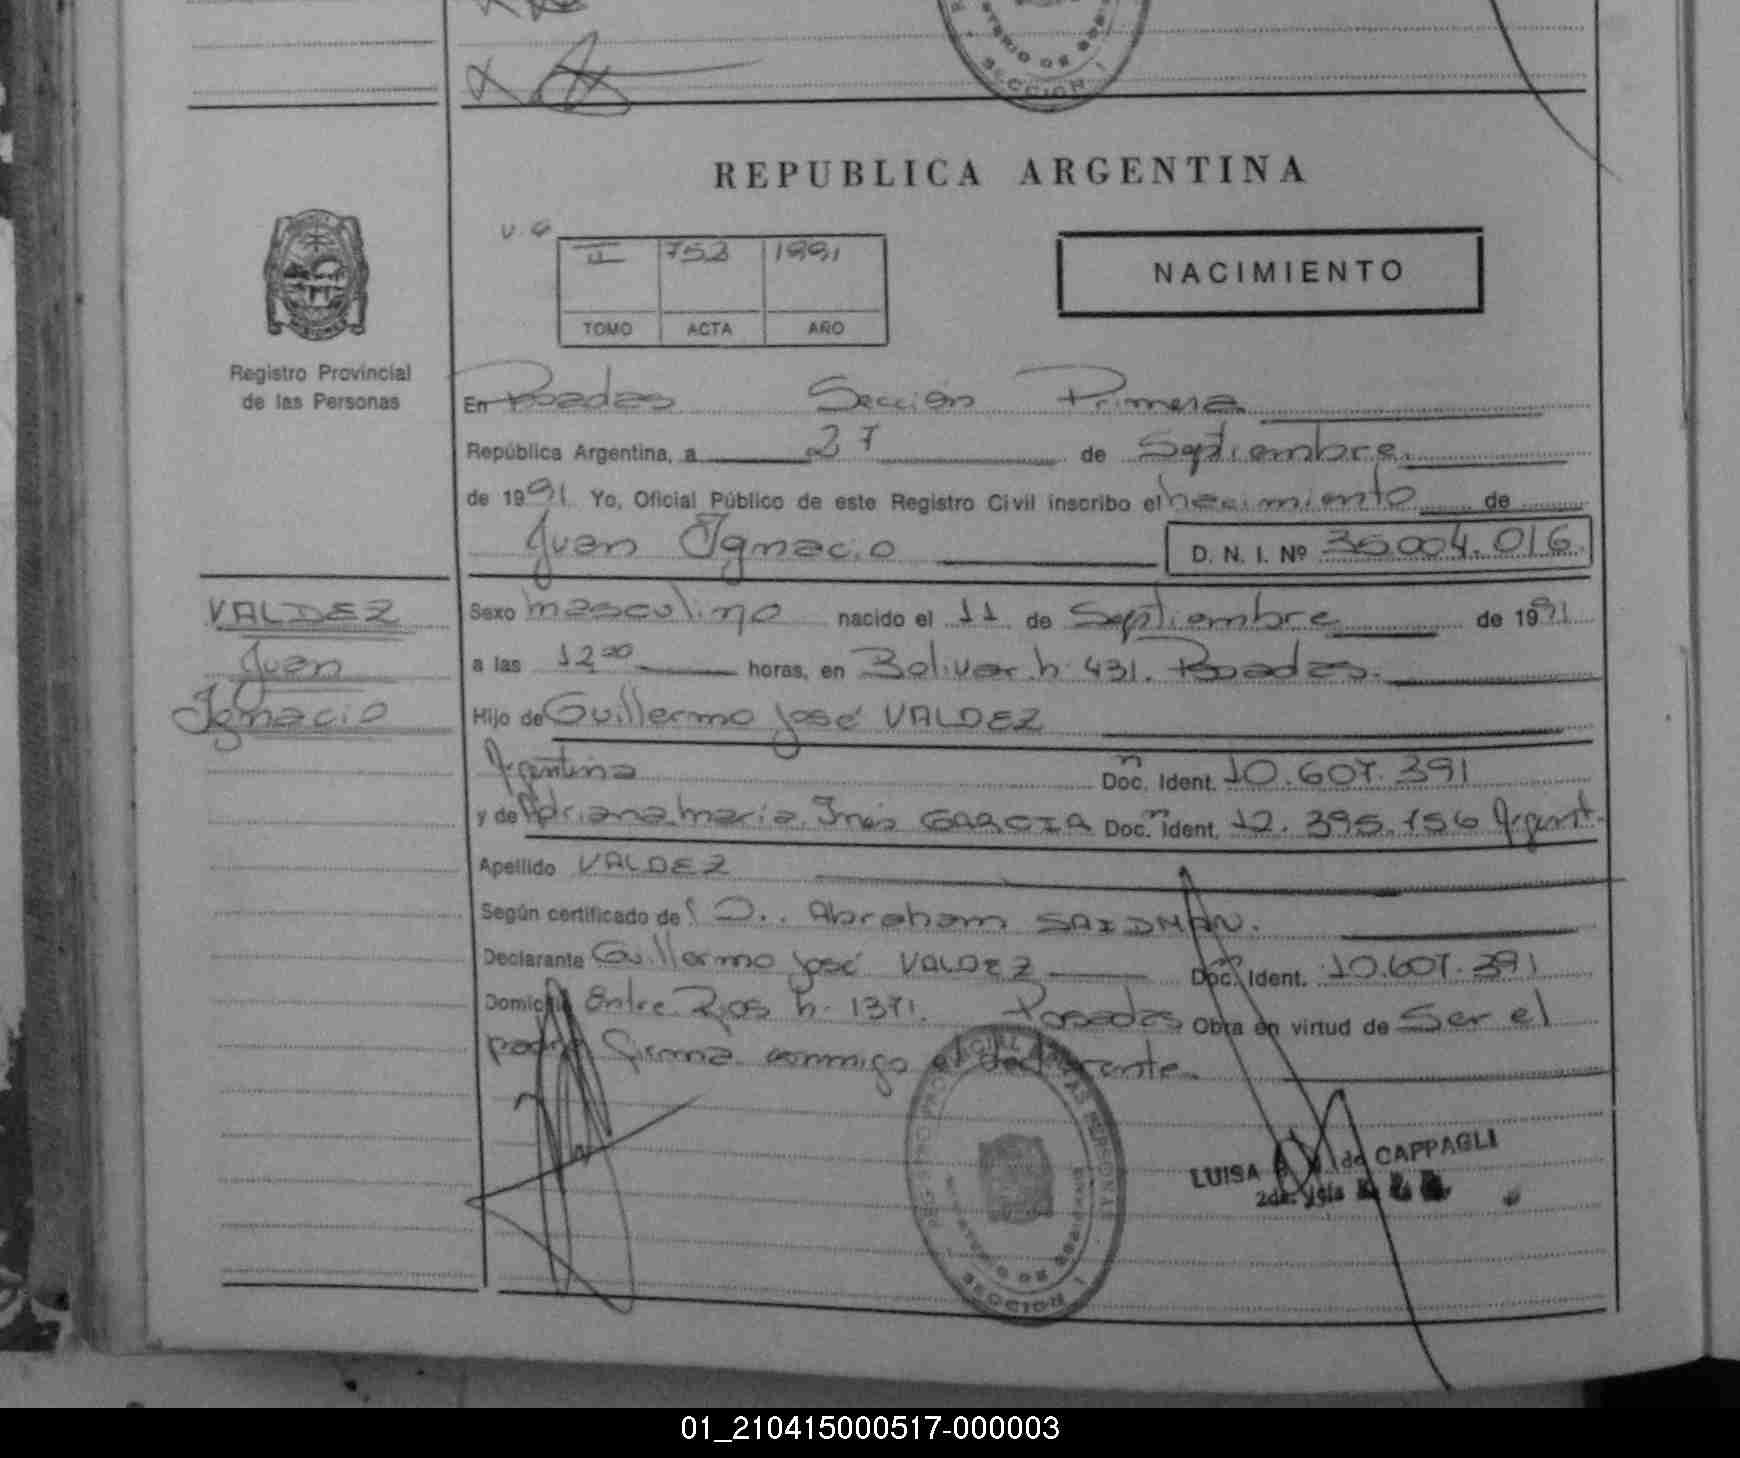 SECCION I
REPUBLICA ARGENTINA
II 752 1991
TOMO ACTA AÑO
NACIMIENTO
Registro Provincial
de las Personas
En Posadas Sección Primera
República Argentina, a 27 de Septiembre
de 1991 Yo, Oficial Público de este Registro Civil inscribo el nacimiento de
Juan Ignacio D. N. I. Nº 36004.016
VALDEZ
Juan
Ignacio
Sexo masculino nacido el 11 de Septiembre de 1991
a las 12 00 horas, en Bolivar n. 431. Posadas.
Hijo de Guillermo José VALDEZ
Argentina Doc. Ident. 10.607.391
y de Adriana maria Inés GARCIA Doc. Ident. 12.395.156 Argent.
Apellido VALDEZ
Según certificado de D. Abraham SAIDMAN.
Declarante Guillermo José VALDEZ Doc. Ident. 10.607.391
Domicilio Entre Rios n. 1371. Posadas Obra en virtud de Ser el
padre firma conmigo el declarante.
LUISA de CAPPAGLI
SECCION I
01_210415000517-000003